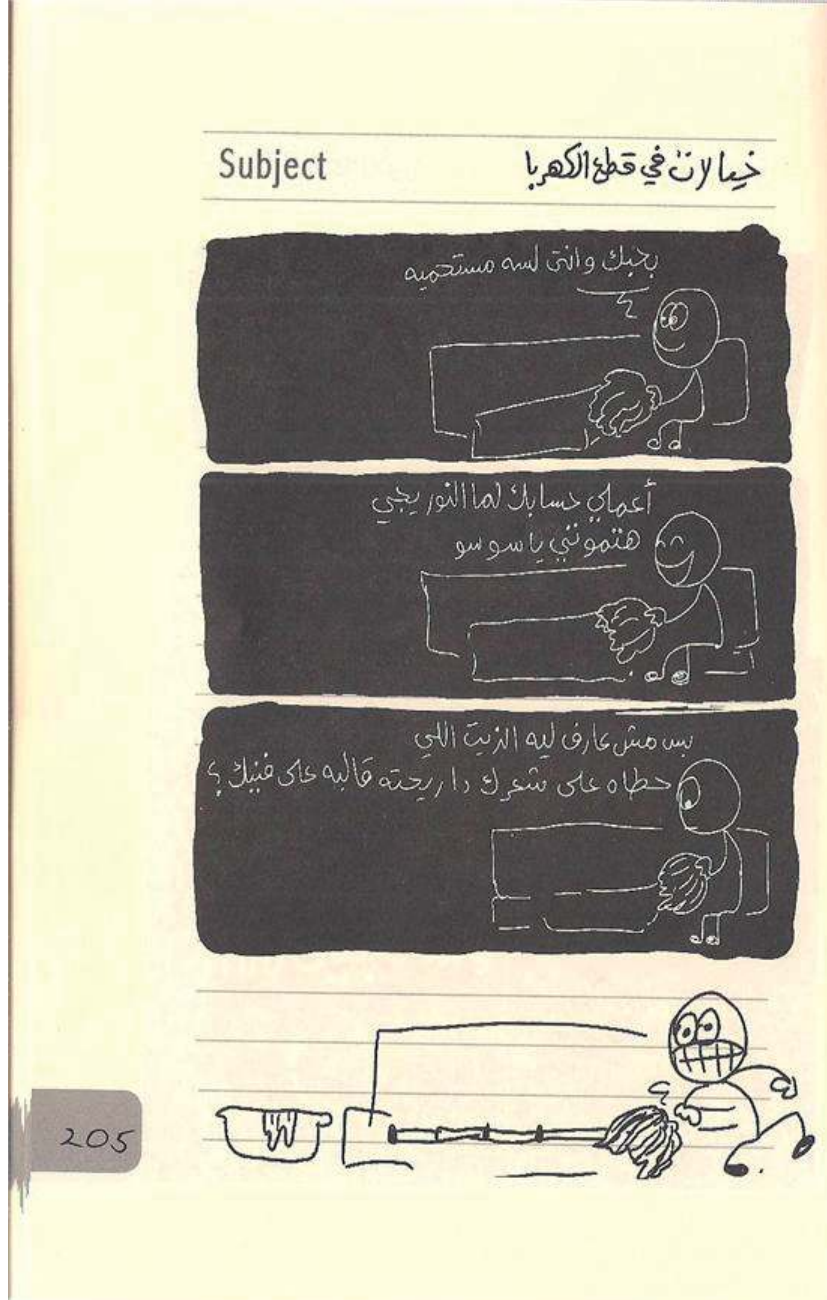 Subject
خيالات في قطع الكهربا
بحبك وانتي لسه مستحميه
أعملي حسابك لما النور يجي
هتموتني يا سوسو
بس مش عارف ليه الزيت اللي
حطاه على شعرك دا ريحته قالبه على فنيك ؟
205